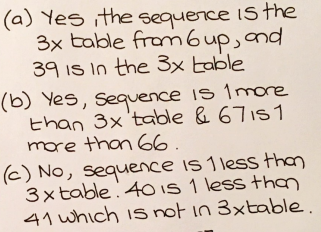 (a) Yes, the sequence is the
3x table from 6 up, and
39 is in the 3x table
(b) Yes, sequence is 1 more
than 3x table & 67 is 1
more than 66.
(c) No, sequence is 1 less than
3x table. 40 is 1 less than
41 which is not in 3xtable.